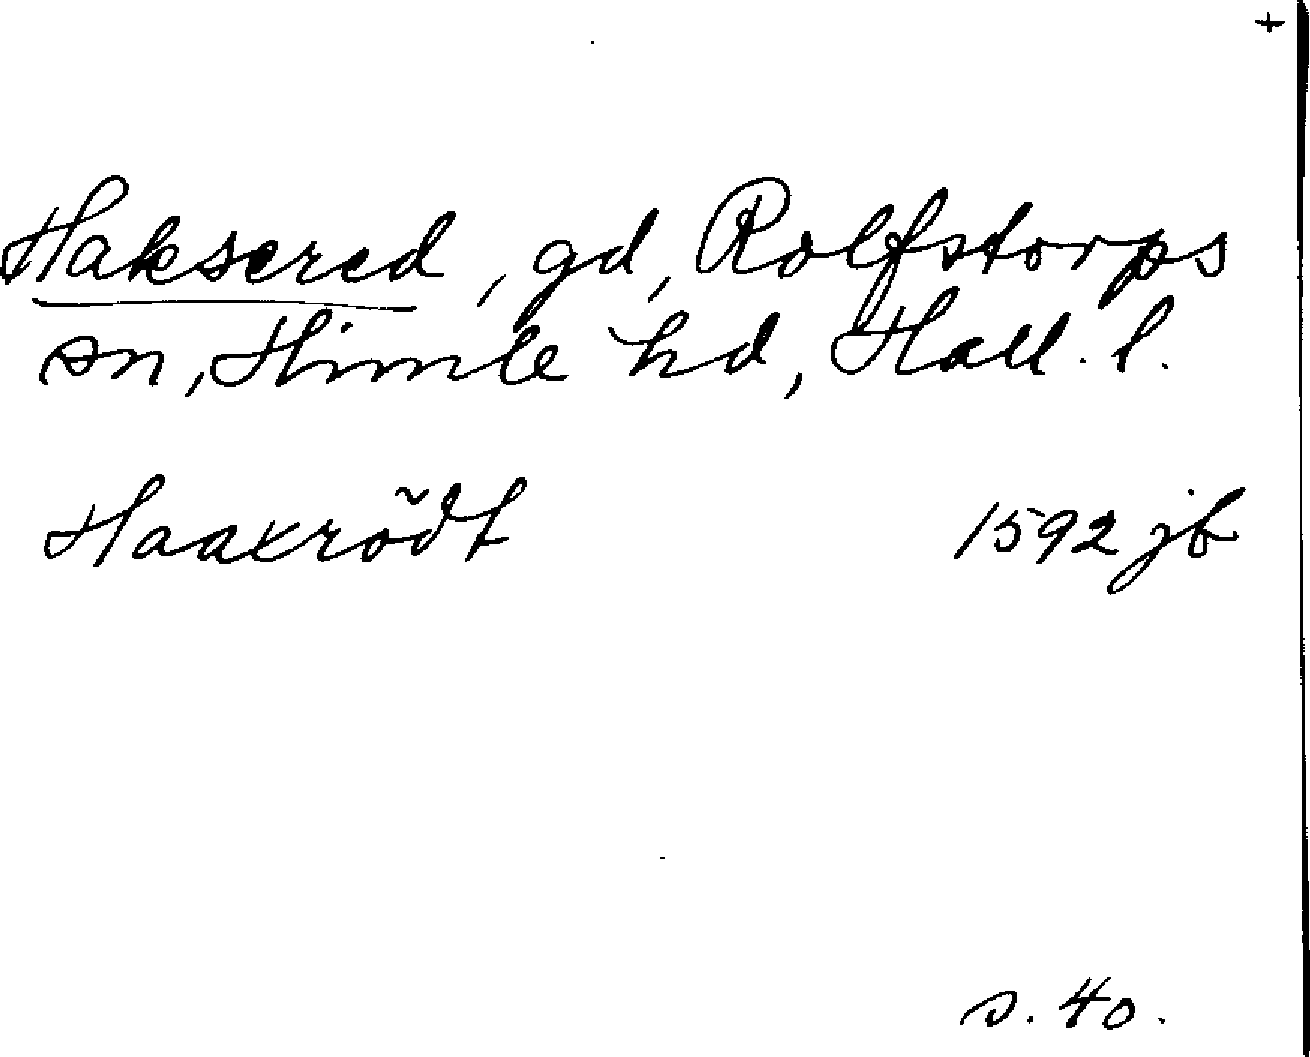 +
Haksered, gd, Rolfstorps
sn, Himle hd, Hall. l.
Haaxrõdt 1592 jb
s. 40.